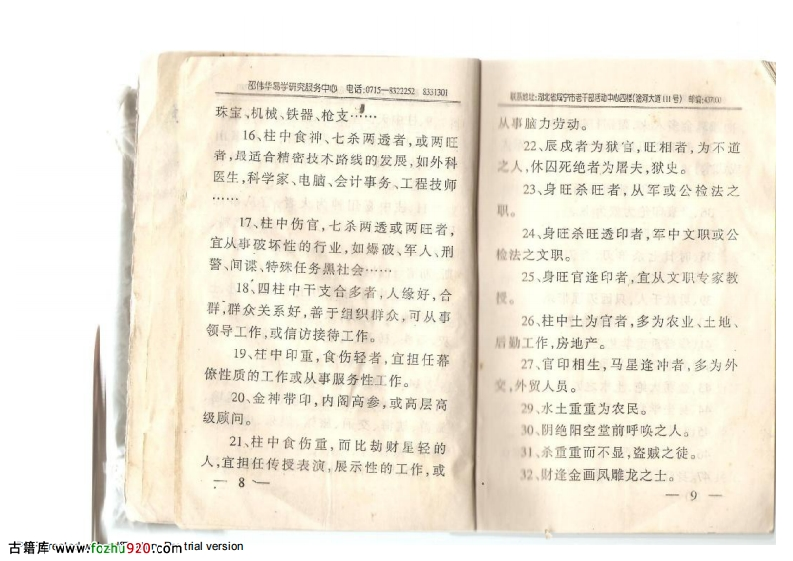 邵伟华易学研究服务中心 电话:0715—8322252 8331301
珠宝、机械、铁器、枪支……
16、柱中食神、七杀两透者,或两旺
者,最适合精密技术路线的发展,如外科
医生,科学家、电脑、会计事务、工程技师
……
17、柱中伤官,七杀两透或两旺者,
宜从事破坏性的行业,如爆破、军人、刑
警、间谍、特殊任务黑社会……
18、四柱中干支合多者,人缘好,合
群,群众关系好,善于组织群众,可从事
领导工作,或信访接待工作。
19、柱中印重,食伤轻者,宜担任幕
僚性质的工作或从事服务性工作。
20、金神带印,内阁高参,或高层高
级顾问。
21、柱中食伤重,而比劫财星轻的
人,宜担任传授表演,展示性的工作,或
— 8 —
联系地址:湖北省咸宁市老干部活动中心四楼(淦河大道111号) 邮编:437100
从事脑力劳动。
22、辰戌者为狱官,旺相者,为不道
之人,休囚死绝者为屠夫,狱史。
23、身旺杀旺者,从军或公检法之
职。
24、身旺杀旺透印者,军中文职或公
检法之文职。
25、身旺官逢印者,宜从文职专家教
授。
26、柱中土为官者,多为农业、土地、
后勤工作,房地产。
27、官印相生,马星逢冲者,多为外
交,外贸人员。
29、水土重重为农民。
30、阴绝阳空堂前呼唤之人。
31、杀重重而不显,盗贼之徒。
32、财逢金画凤雕龙之士。
— 9
古籍库 www.fozhu920.com
trial version